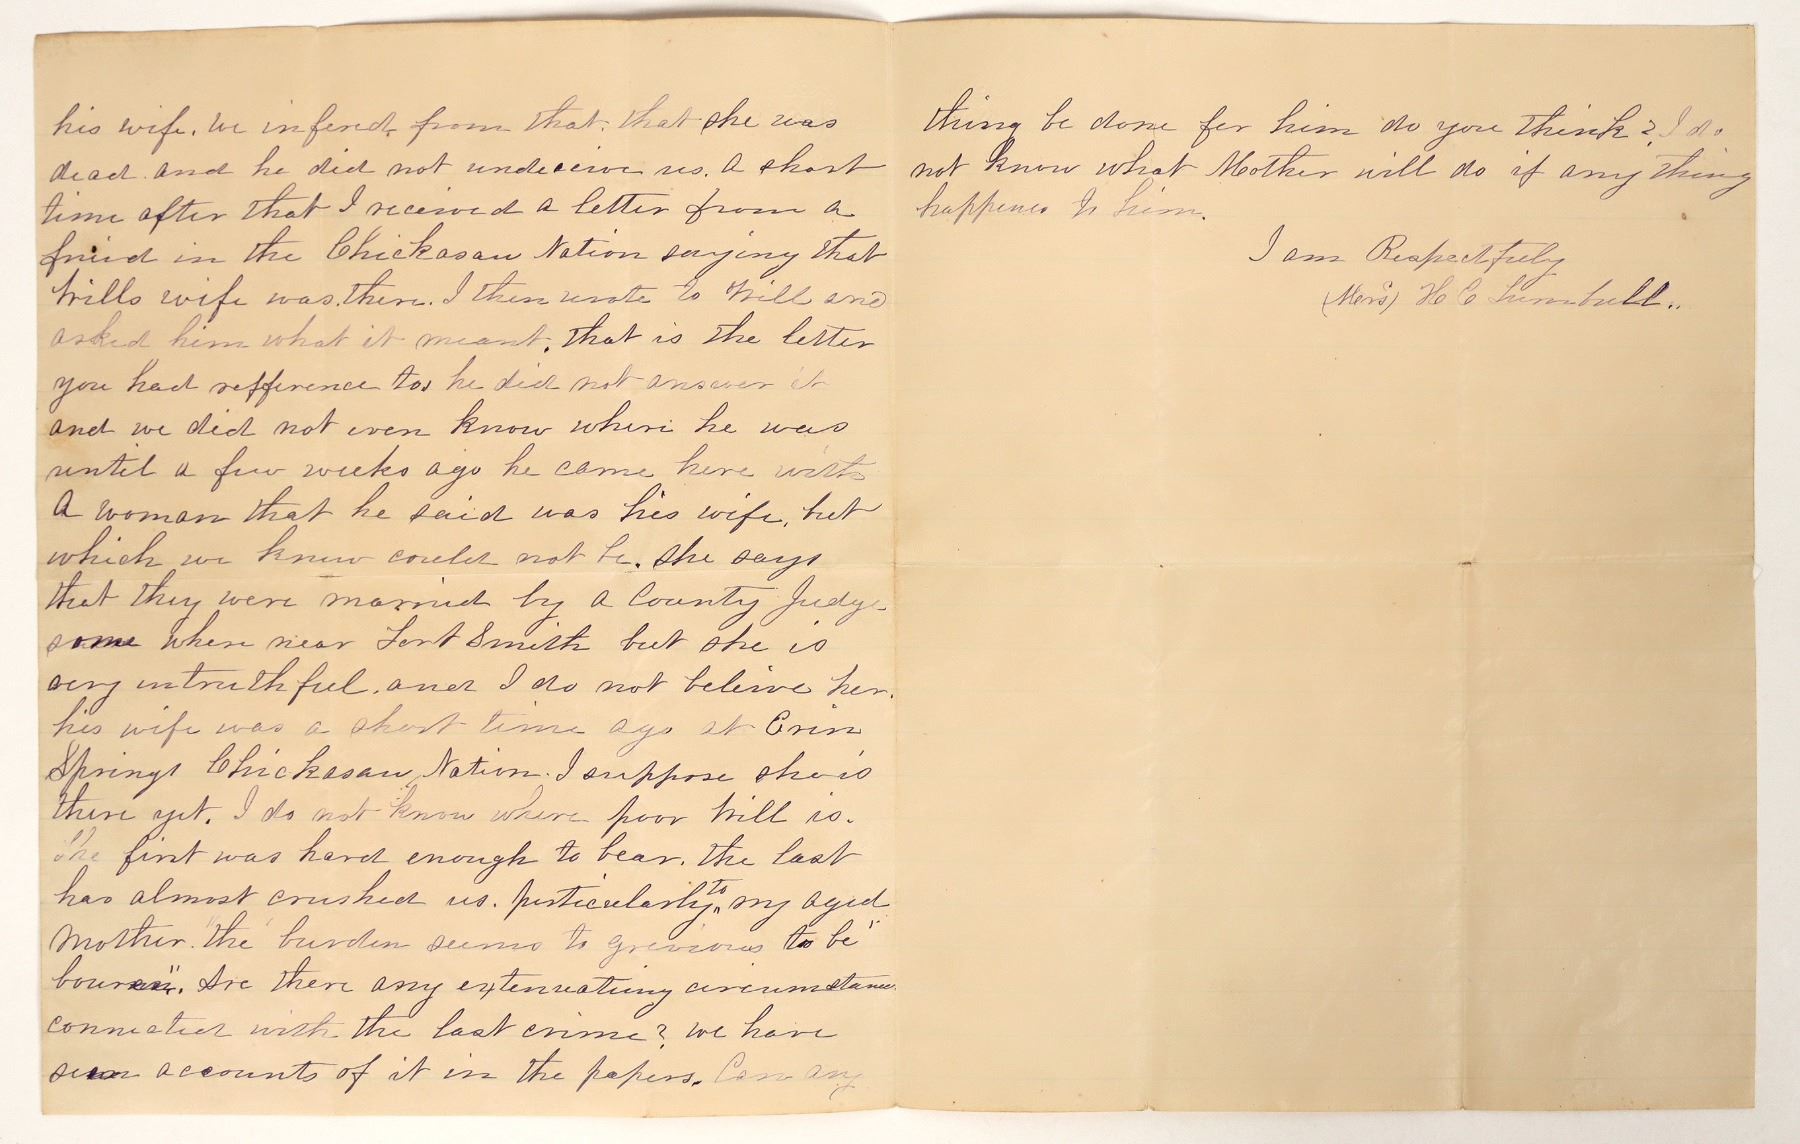 his wife. we infered, from that, that she was
dead. and he did not undeceive us. A short
time after that I received a letter from a
friend in the Chickasaw Nation saying that
Wills wife was there. I then wrote to Will and
asked him what it meant. that is the letter
you had refference to, he did not answer it
and we did not even know where he was
until a few weeks ago he came here with
A woman that he said was his wife, but
which we knew could not be. she says
that they were married by a County Judge
some where near Fort Smith but she is
very untruthful. and I do not beleive her.
his wife was a short time ago at Erin
Springs Chickasaw Nation. I suppose she is
there yet. I do not know where poor Will is.
The first was hard enough to bear. the last
has almost crushed us. perticularly to my aged
Mother. "the burden seems to grevious to be"
". Are there any extenuating circumstance
connected with the last crime? we have
seen accounts of it in the papers. Can any
thing be done for him do you think? I do
not know what Mother will do if any thing
happenes to him.
I am Respectfuly
(Mers) H C